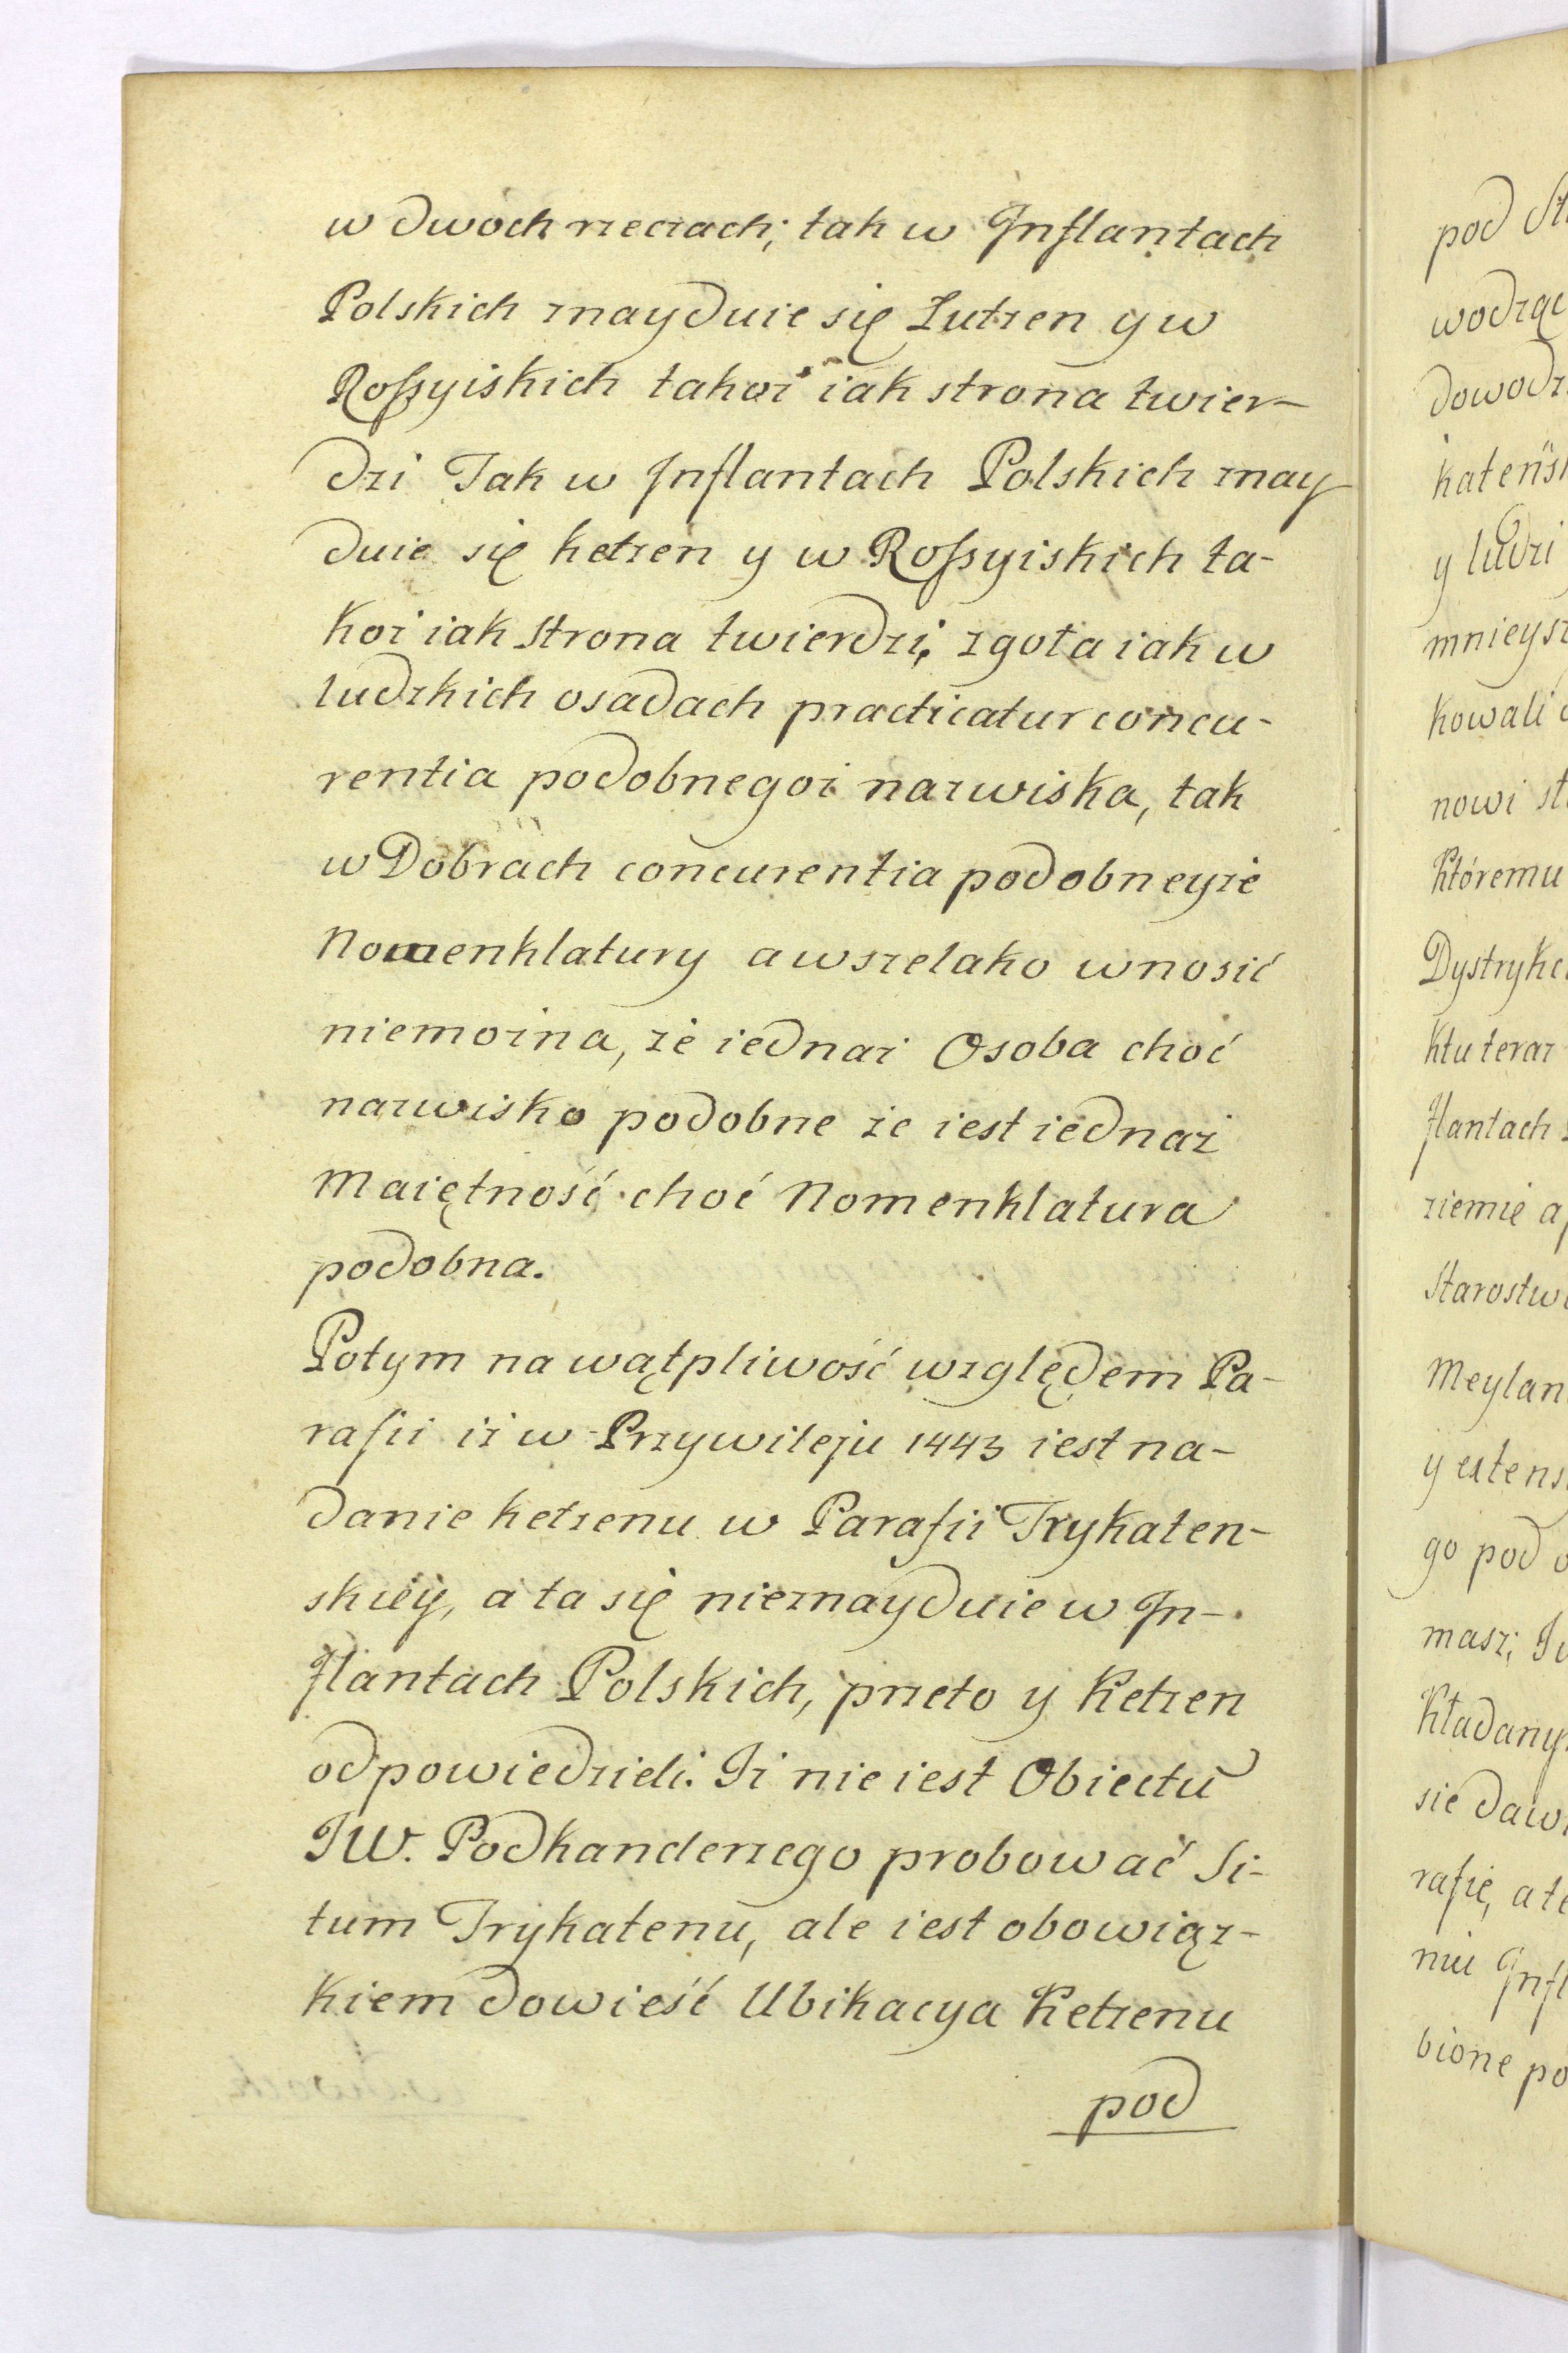 w dwoch rzeczach; tak w Inflantach
Polskich znayduie się Lutzen y w
Rossyiskich takoż iak strona twier-
dzi Tak w Inflantach Polskich znay
duie się ketzen y w Rossyiskich ta-
koż iak strona twierdzi, zgoła iak w
ludzkich osadach practicatur concu-
rentia podobnegoż nazwiska, tak
w Dobrach concurentia podobneyże
Nomenklatury a wszelako wnosić
niemożna, że iednaż Osoba choć
nazwisko podobne że iest iednaż
Maiętność choć Nomenklatura
podobna.
Potym na wątpliwość względem Pa-
rafii iż w Przywileju 1443 iest na-
danie ketzenu w Parafii Trykaten-
skiey, a ta się nieznayduie w In-
flantach Polskich, przeto y Ketzen
odpowiedzieli. Iż nie iest Obiectu
JW. Podkanclerzego probować Si-
tum Trykatenu, ale iest obowiąz-
kiem dowieść Ubikacya Ketzenu
pod
pod
wodzą
dowodz
kateńs
y ludzi
mnieysz
kowali
nowi
któremu
Dystrykc
ktu teraz
flantach
ziemie
Starostw
Meylan
y extens
go pod
masz;
kładany
sie daw
rafię, a
niu Infl
bione po